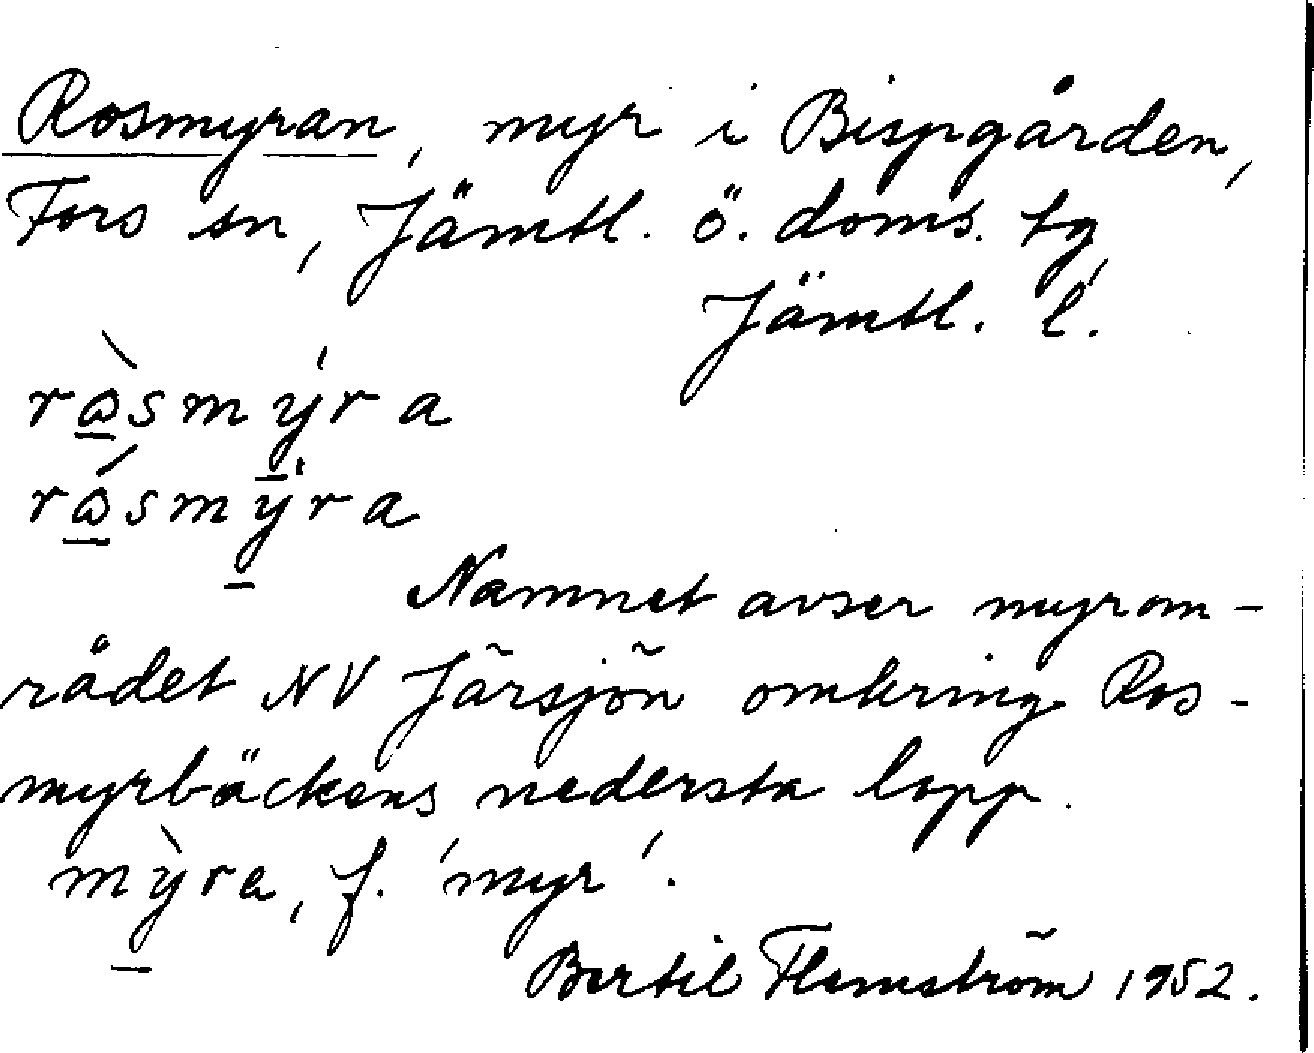 Rosmyran, myr i Bispgården,
Fors sn, Jämtl. ö. doms. tg,
Jämtl. l.
ròsmýra
rósmy̍ra
Namnet avser myrom-
rådet NV Järsjön omkring Ros-
myrbäckens nedersta lopp.
mỳra, f. 'myr'.
Bertil Flemström 1952.